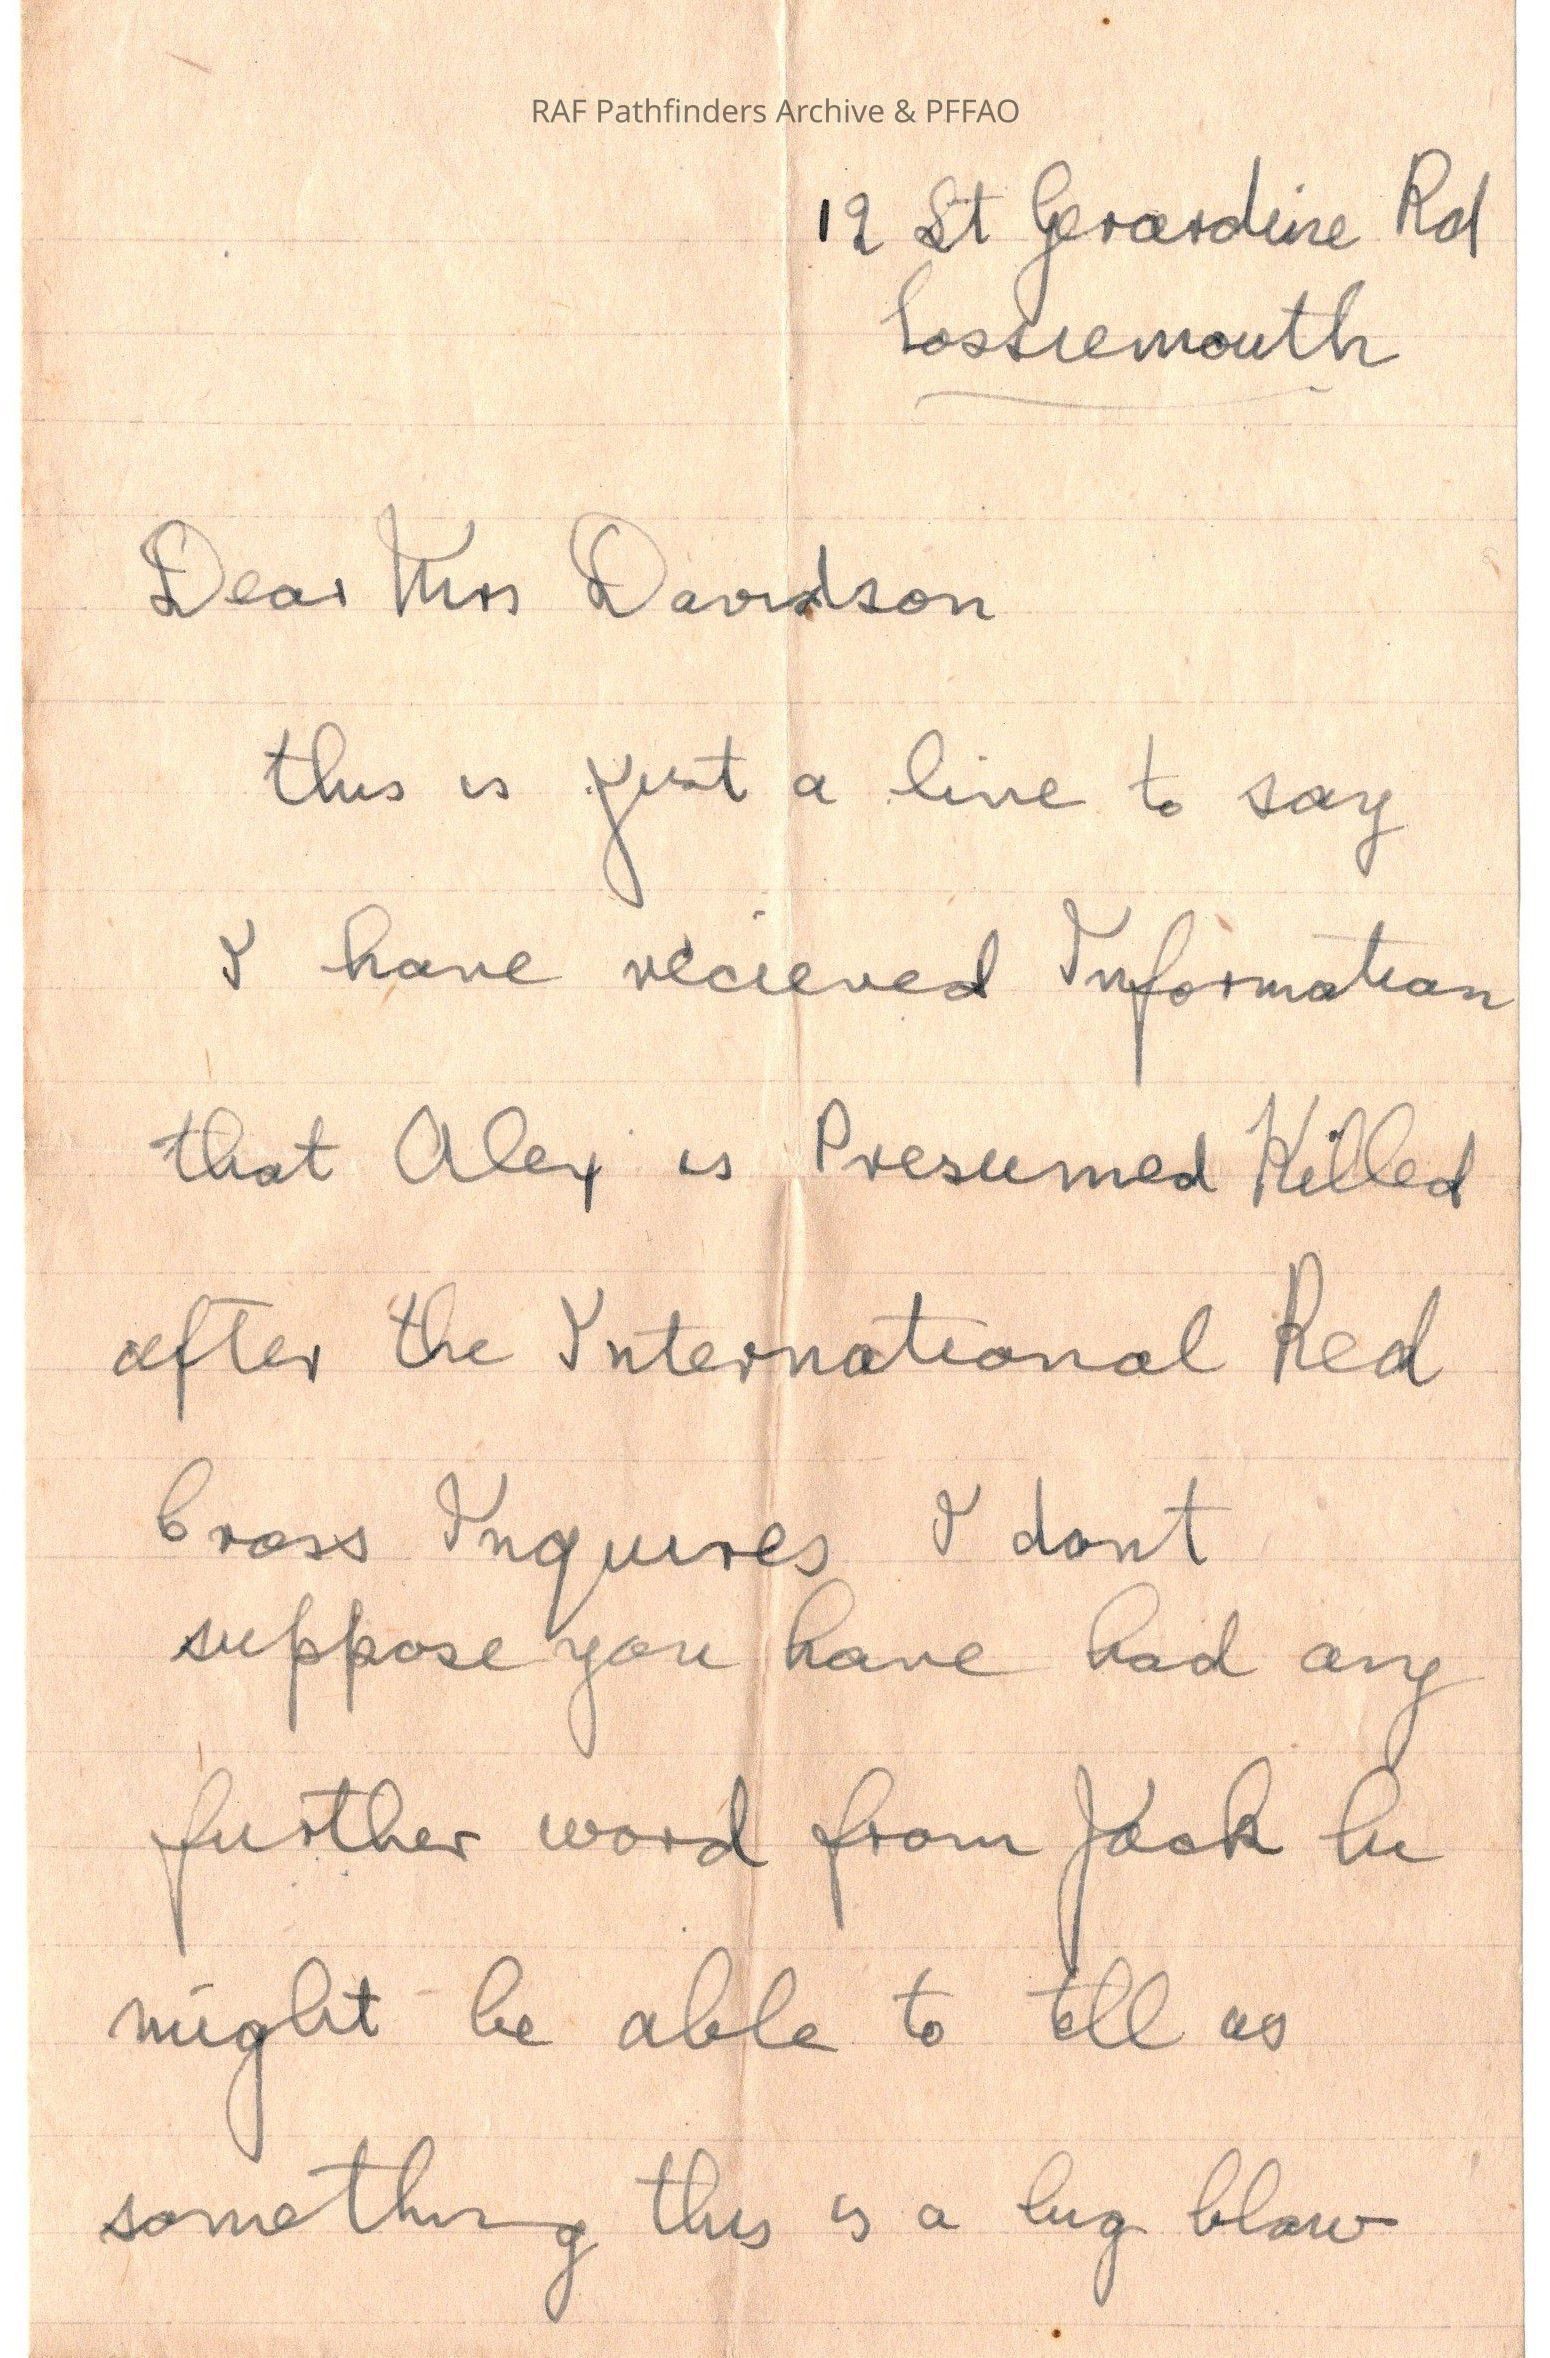 RAF Pathfinders Archive & PFFAO
12 St Gerardine Rd
Lossiemouth
Dear Mrs Davidson
this is just a line to say
I have recieved Information
that Alex is Presumed Killed
after the International Red
Cross Inquires I dont
suppose you have had any
further word from Jack he
might be able to tell us
something this is a big blow